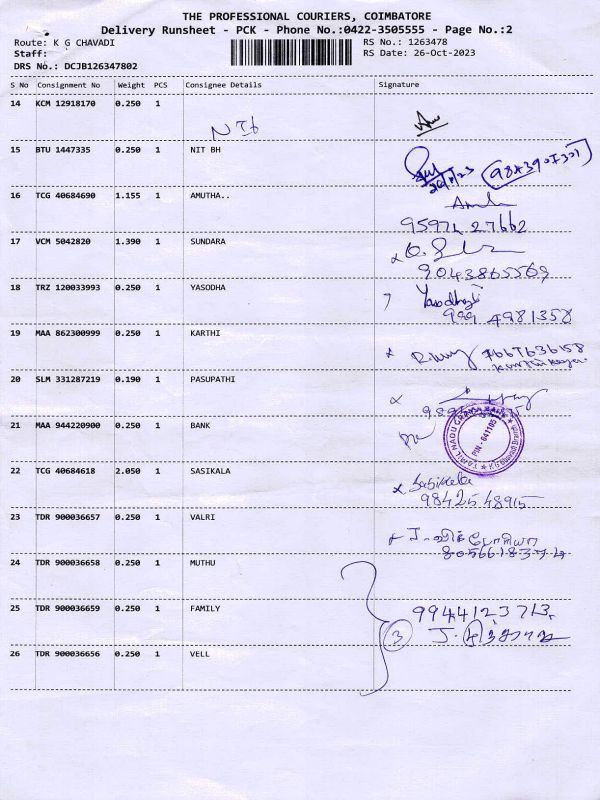 THE PROFESSIONAL COURIERS, COIMBATORE
Delivery Runsheet - PCK - Phone No.:0422-3505555 - Page No.:2
Route: K G CHAVADI RS No.: 1263478
Staff: RS Date: 26-Oct-2023
DRS No.: DCJB126347802
S No Consignment No Weight PCS Consignee Details Signature
14 KCM 12918170 0.250 1
15 BTU 1447335 0.250 1 NIT BH
16 TCG 40684690 1.155 1 AMUTHA..
95974 27662
17 VCM 5042820 1.390 1 SUNDARA
9043865569
18 TRZ 120033993 0.250 1 YASODHA Yasodha
999 4981358
19 MAA 862300999 0.250 1 KARTHI
20 SLM 331287219 0.190 1 PASUPATHI
21 MAA 944220900 0.250 1 BANK
TAMIL NADU GRAMA BANK
PIN - 641105
22 TCG 40684618 2.050 1 SASIKALA Sasikala
98425 48915
23 TDR 900036657 0.250 1 VALRI
8056618374
24 TDR 900036658 0.250 1 MUTHU
25 TDR 900036659 0.250 1 FAMILY 9944123713
3
26 TDR 900036656 0.250 1 VELL